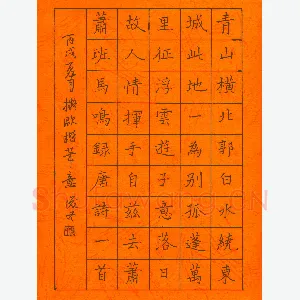 青山橫北郭白水繞東
城此地一為別孤蓬萬
里征浮雲遊子意落日
故人情揮手自茲去蕭
蕭班馬鳴錄唐詩一首
丙戌夏月擬歐楷意